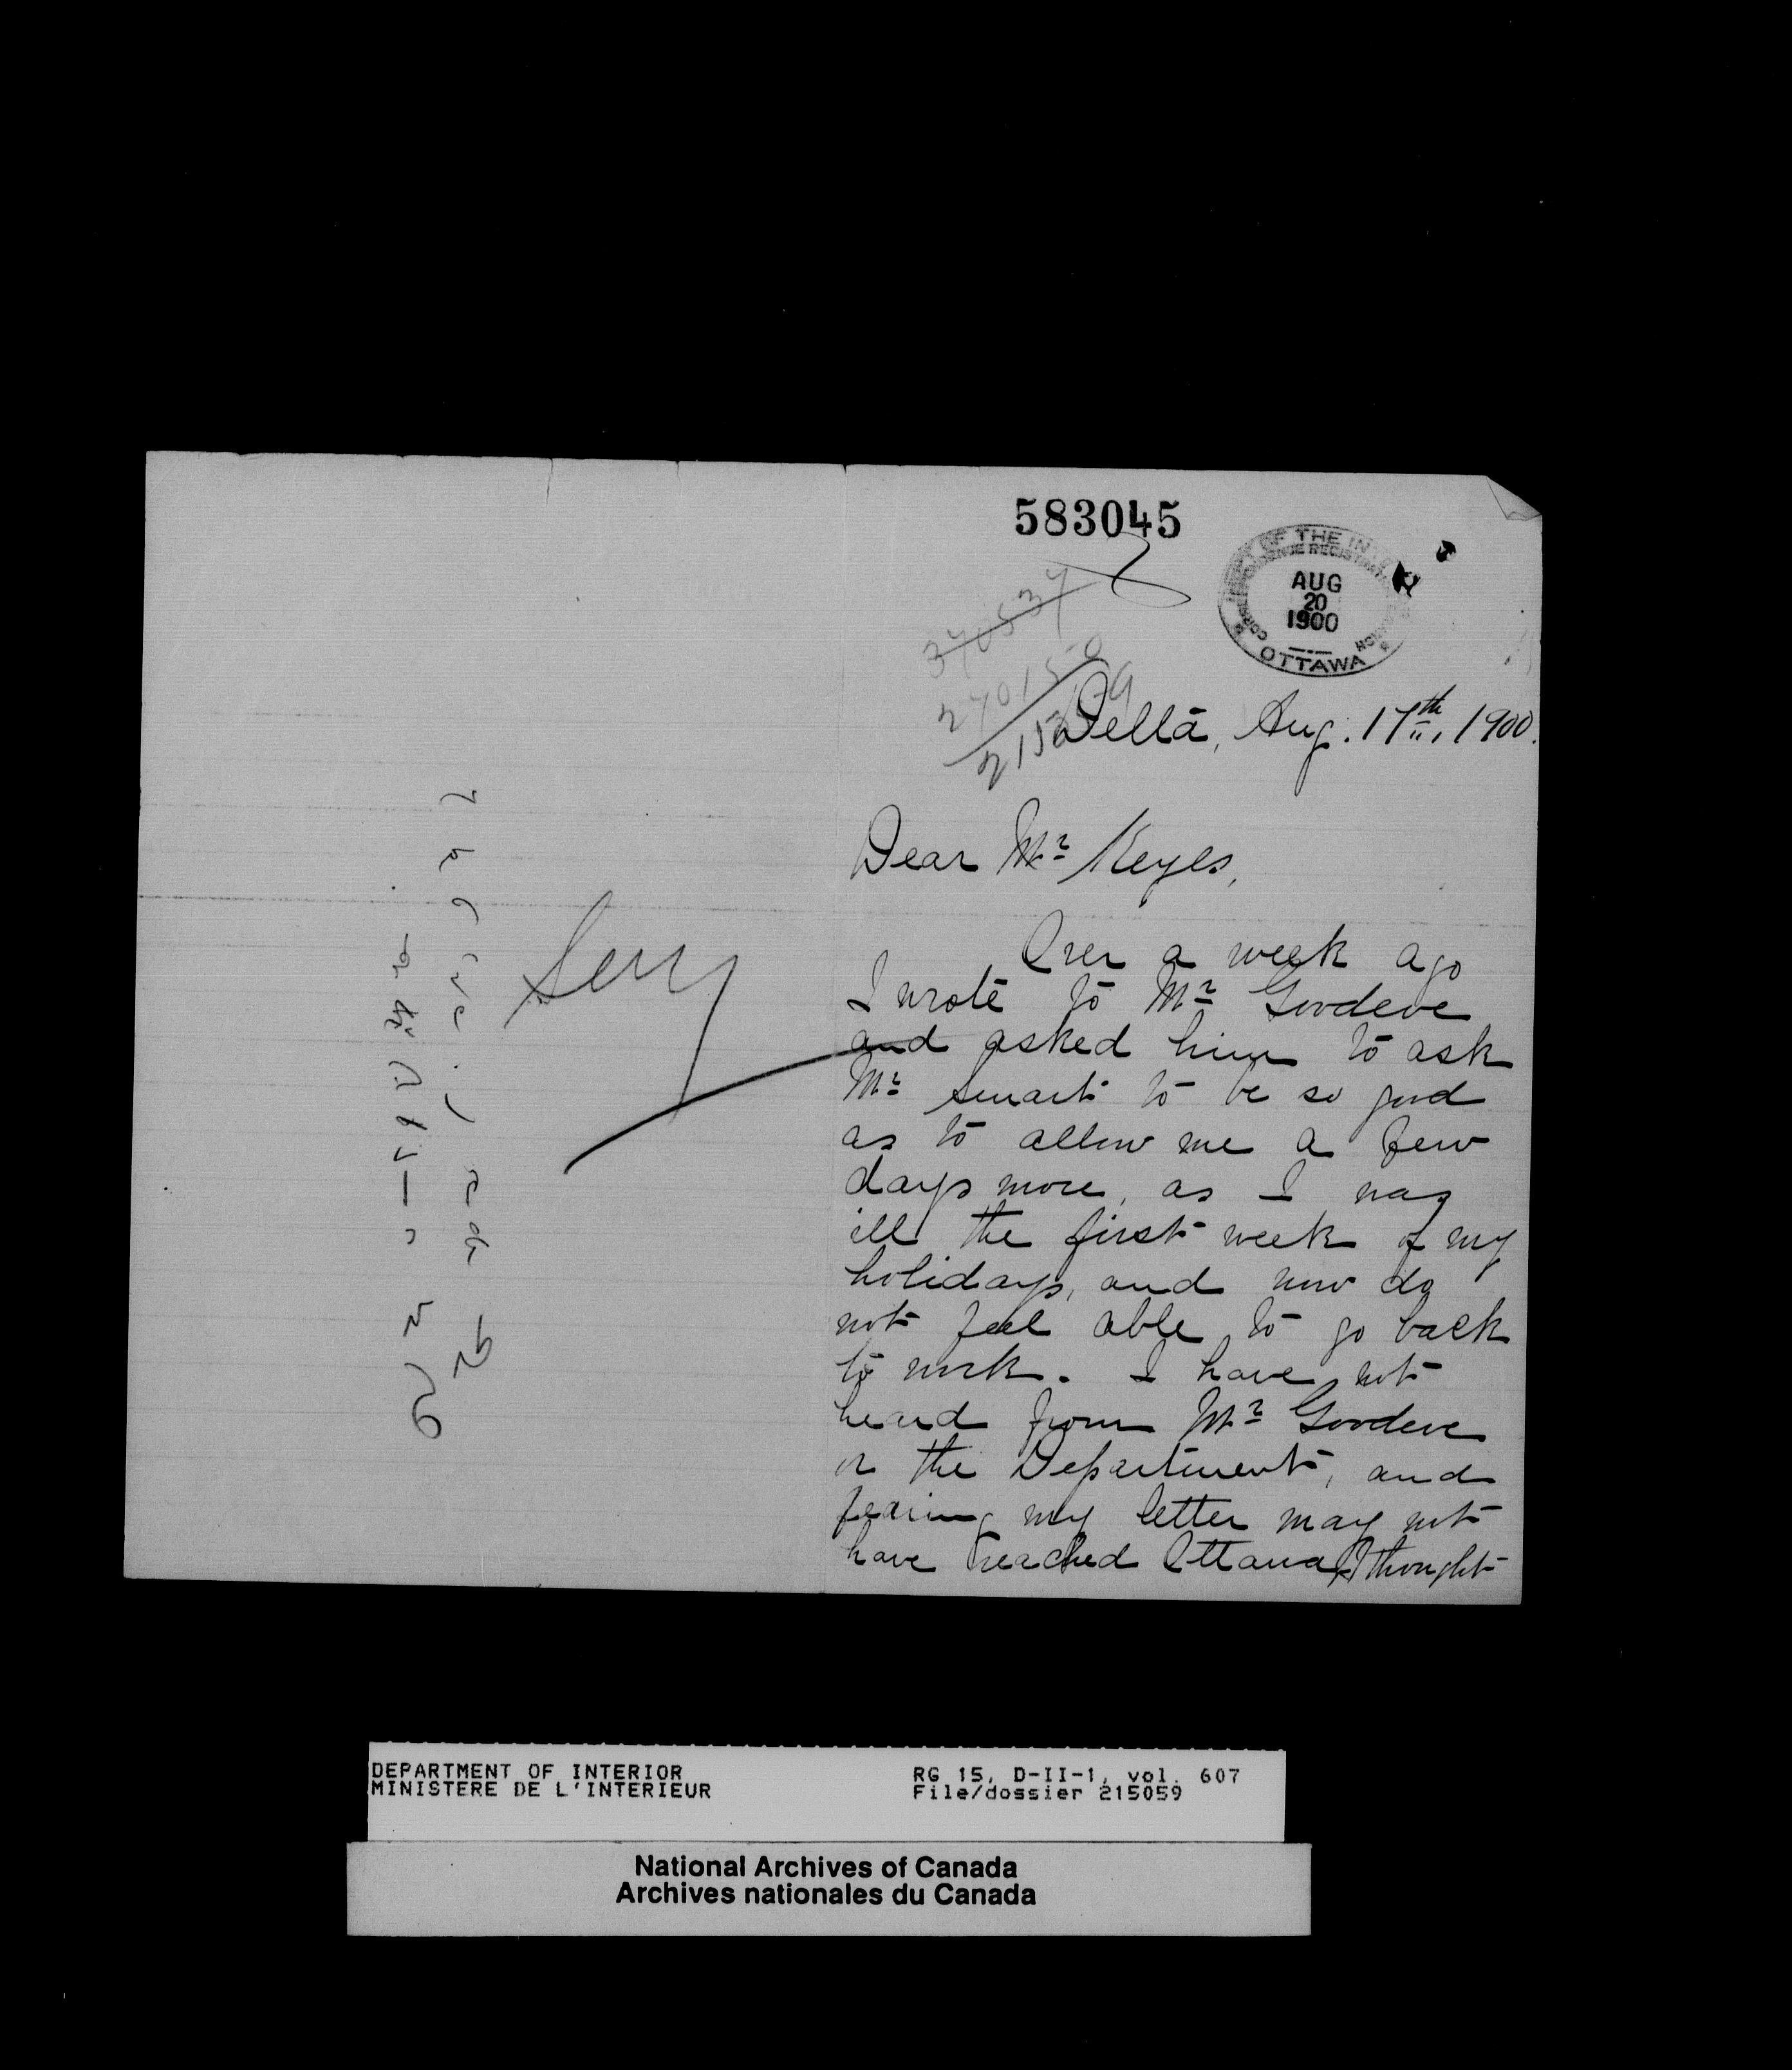 583045
DEPT OF THE INTERIOR
AUG
20
1900
OTTAWA
370537
270150
215059
Delta, Aug. 17th, 1900.
Dear Mr Keyes,
Over a week ago
I wrote to Mr Goodeve
and asked him to ask
Mr Smart to be so good
as to allow me a few
days more, as I was
ill the first week of my
holidays, and now do
not feel able to go back
to work. I have not
heard from Mr Goodeve
or the Department, and
fearing my letter may not
have reached Ottawa, I thought
DEPARTMENT OF INTERIOR
MINISTERE DE L'INTERIEUR
RG 15, D-II-1, vol. 607
File/dossier 215059
National Archives of Canada
Archives nationales du Canada